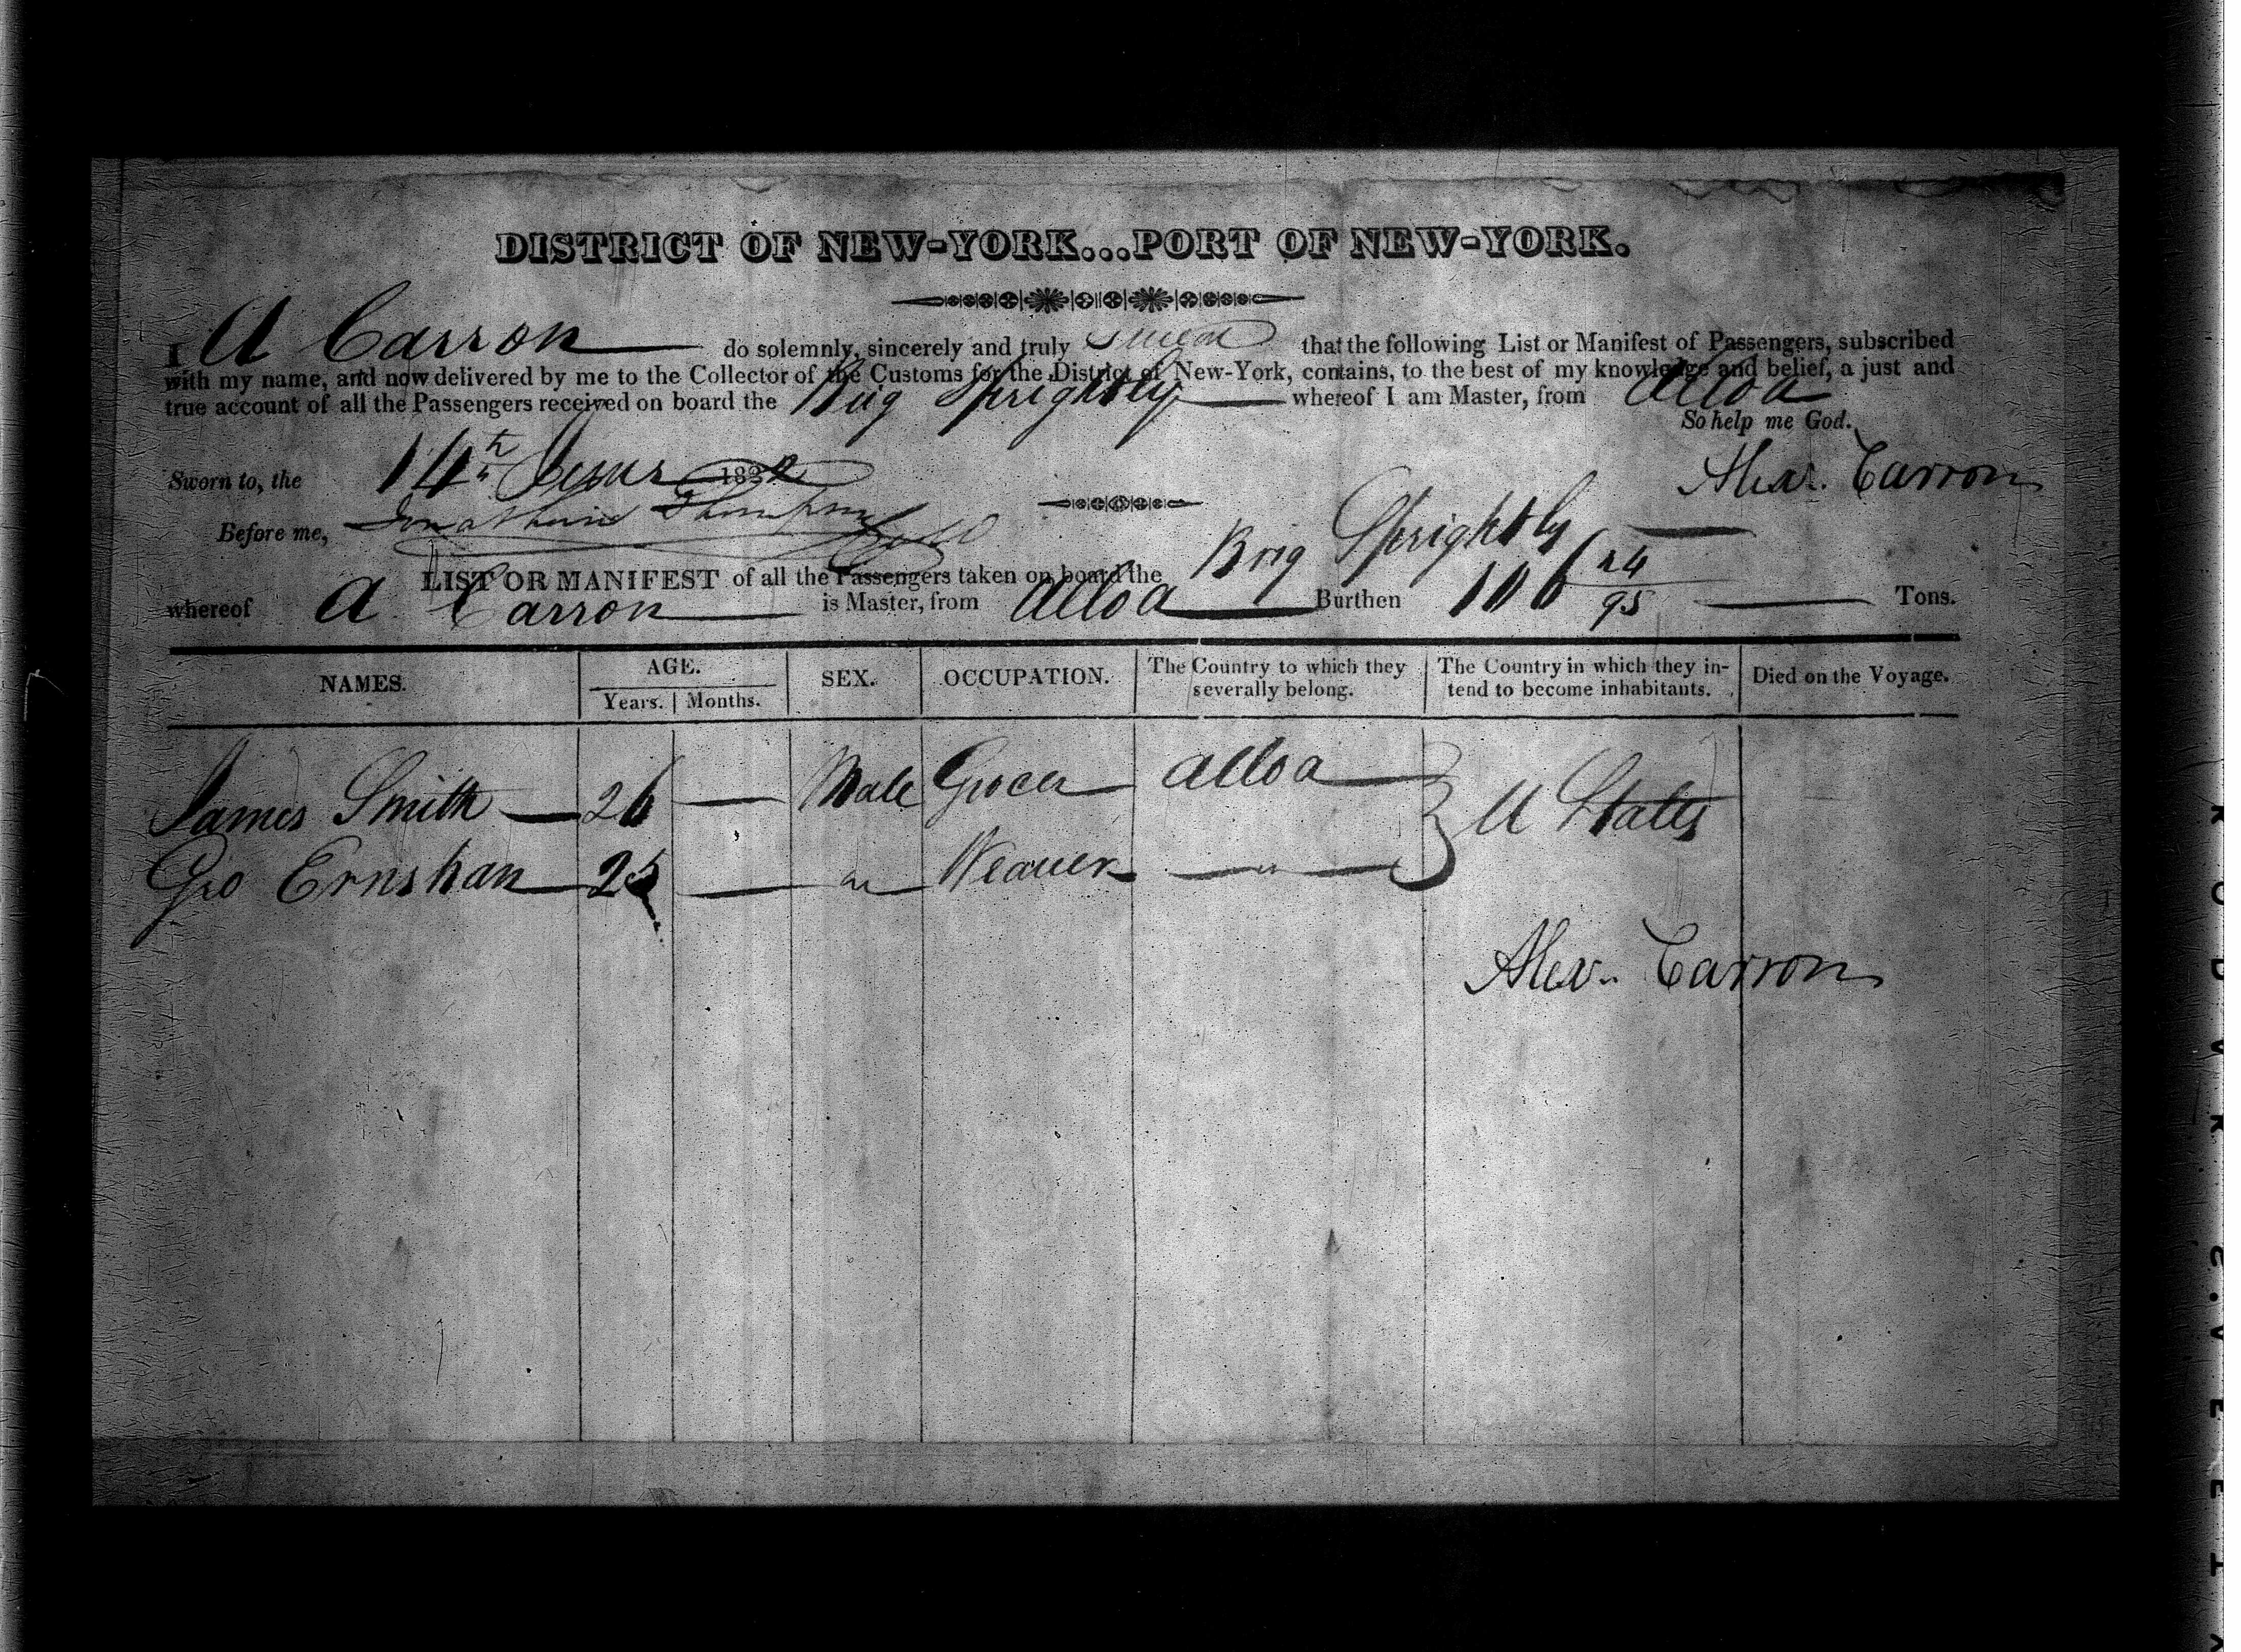 DISTRICT OF NEW-YORK...PORT OF NEW-YORK.
I A Carron do solemnly, sincerely and truly swear that the following List or Manifest of Passengers, subscribed
with my name, and now delivered by me to the Collector of the Customs for the District of New-York, contains, to the best of my knowledge and belief, a just and
true account of all the Passengers received on board the Brig Sprightly whereof I am Master, from Alloa
So help me God.
Sworn to, the 14th 1832 Alexr. Carron
Before me, Jonathan Thompson
LIST OR MANIFEST of all the Passengers taken on board the Brig Sprightly
whereof A Carron is Master, from Alloa Burthen 106 24/95 Tons.
NAMES. AGE. SEX. OCCUPATION. The Country to which they severally belong. The Country in which they intend to become inhabitants. Died on the Voyage.
Years. Months.
James Smith — 26 — Male Grocer Alloa U States
Geo Ernshan 25 — " Weaver — " —
Alexr. Carron
KODAK S.AFETY